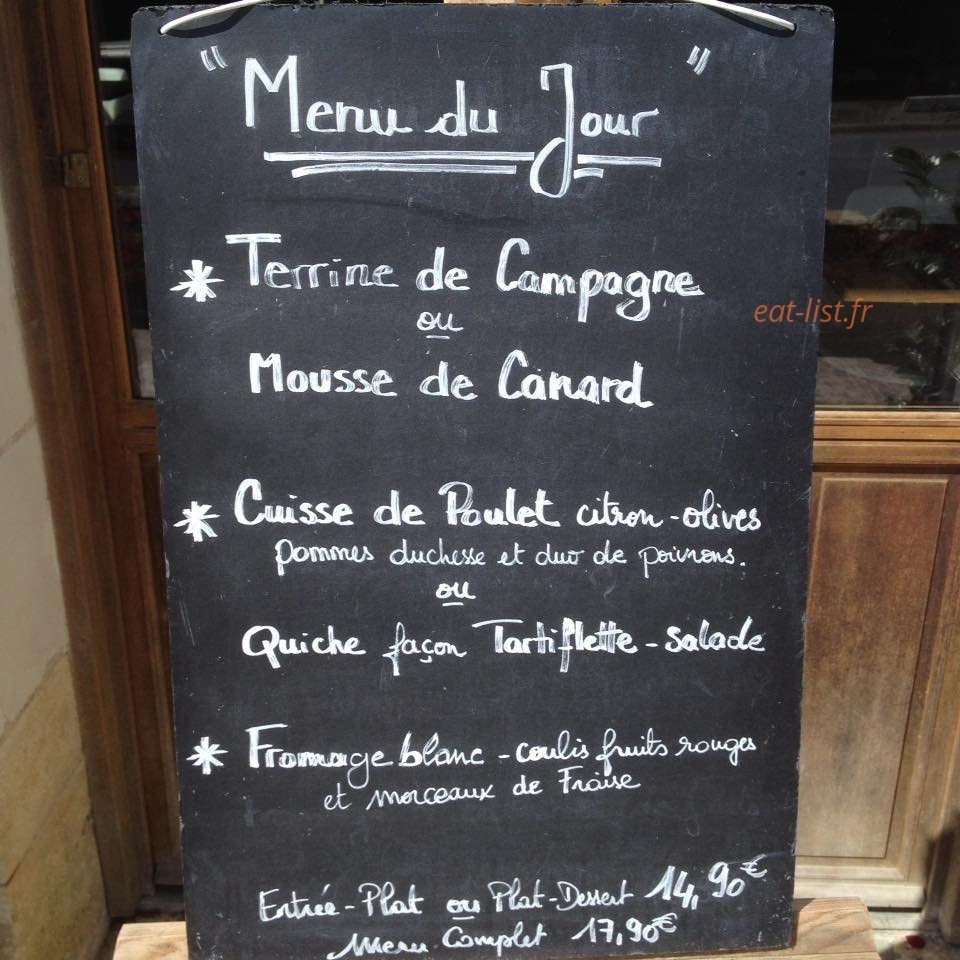 " Menu du Jour "
* Terrine de Campagne
ou
Mousse de Canard
eat-list.fr
* Cuisse de Poulet citron-olives
pommes duchesse et duo de poivrons.
ou
Quiche façon Tartiflette - salade
* Fromage blanc - coulis fruits rouges
et morceaux de Fraise
Entrée-Plat ou Plat-Dessert 14,90€
Menu Complet 17,90€